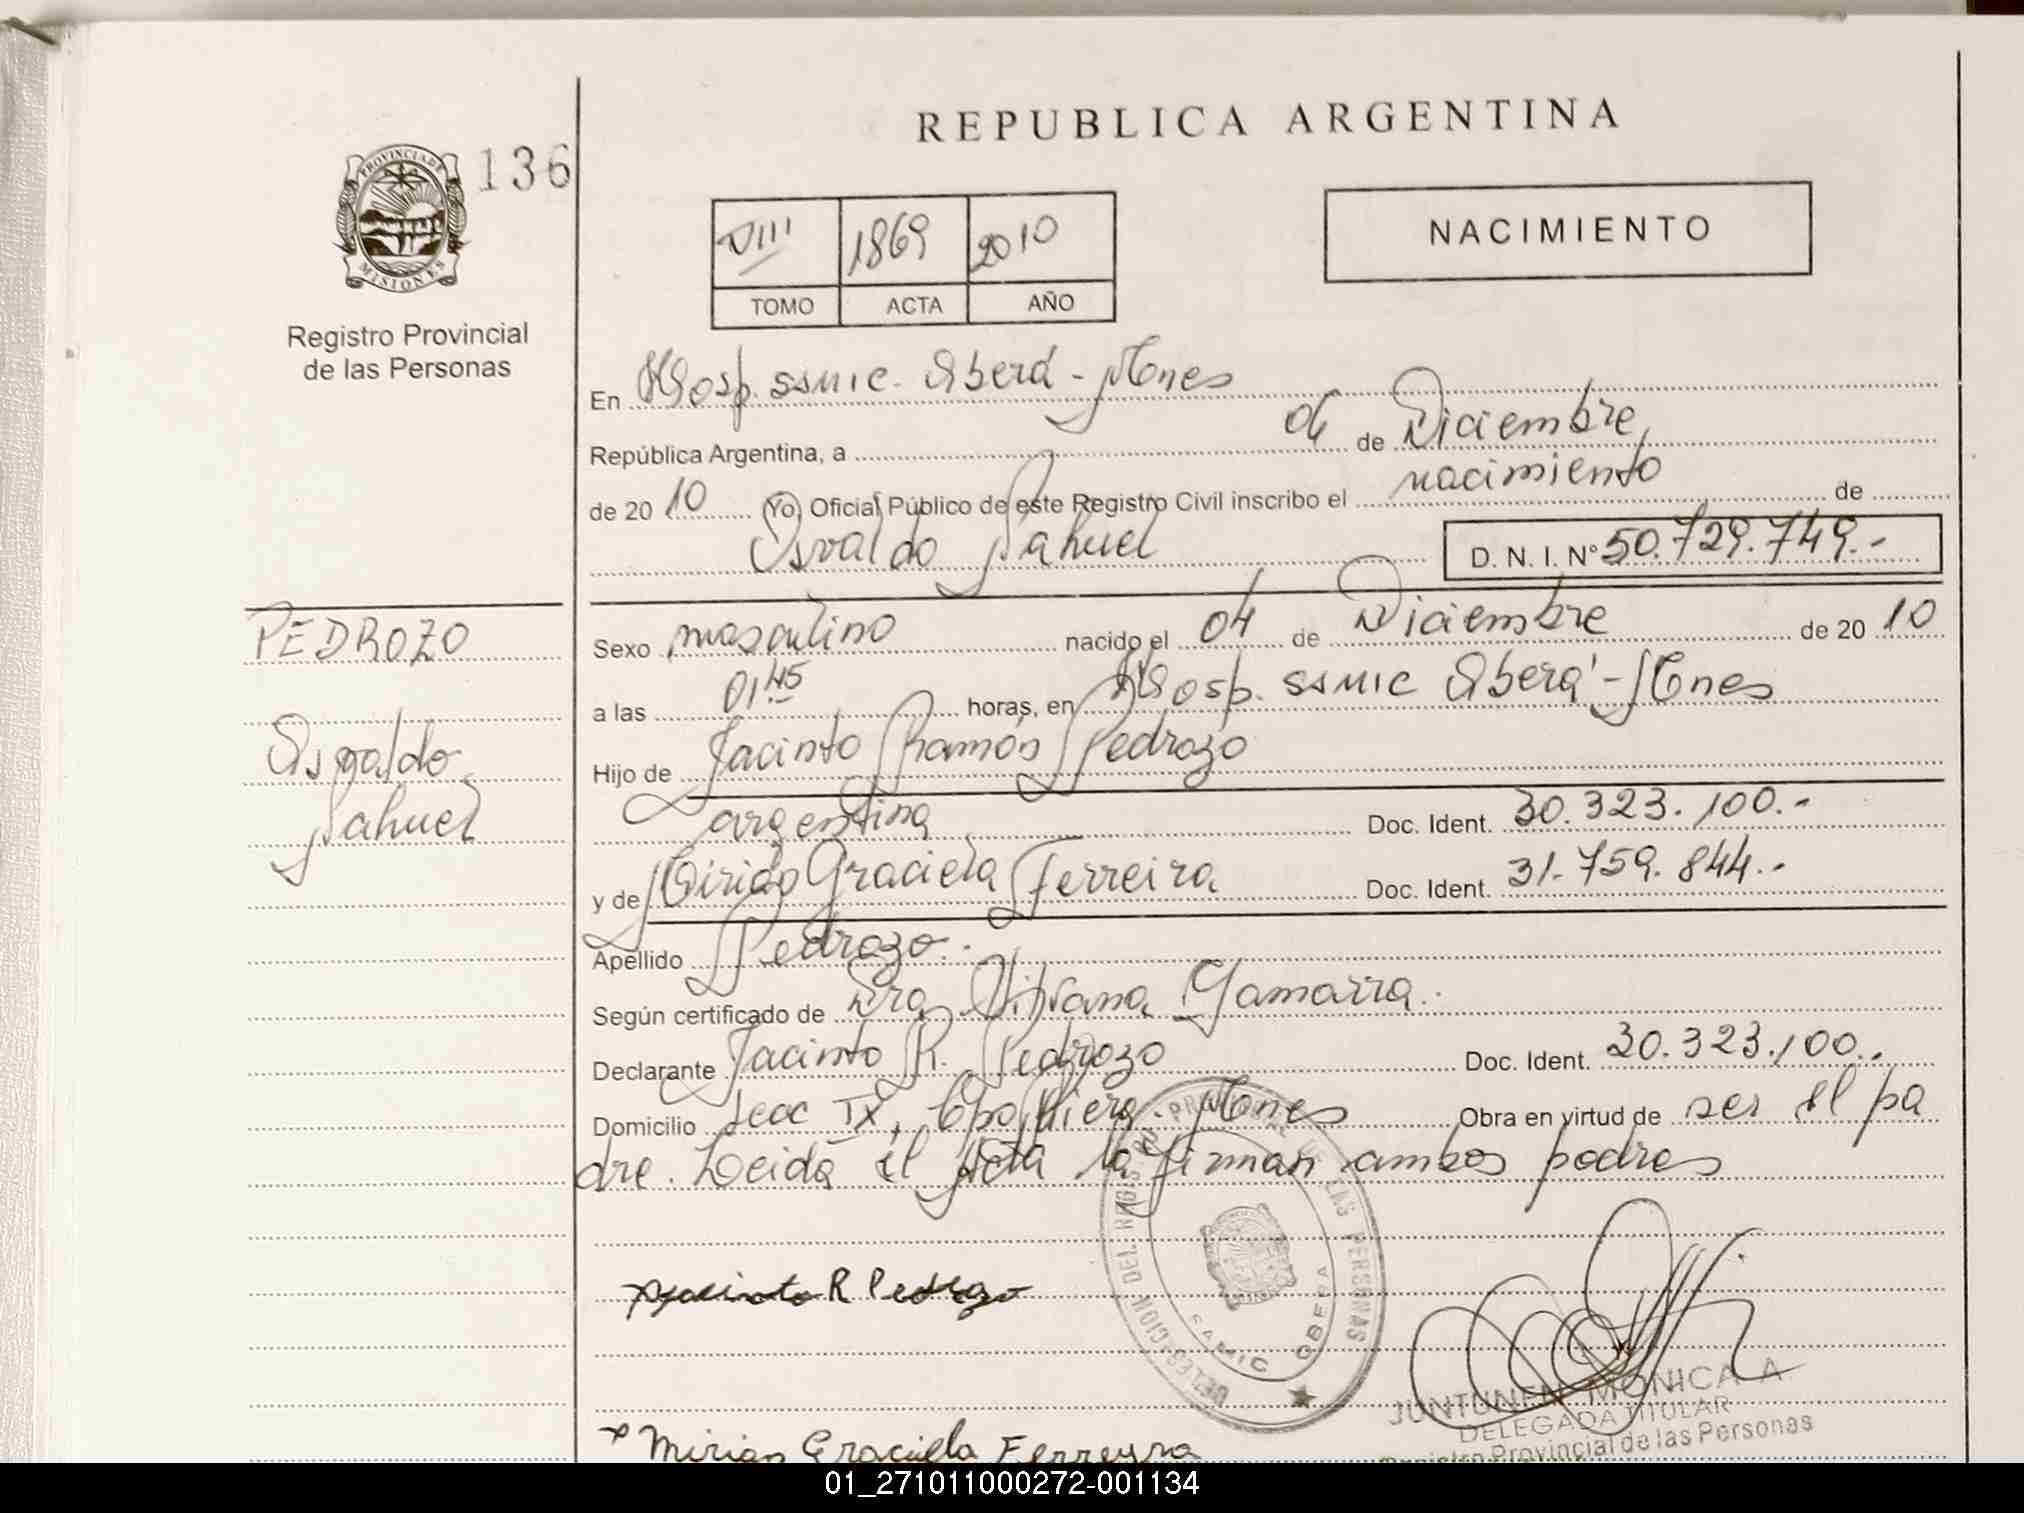 REPUBLICA ARGENTINA
136
PROVINCIA DE
MISIONES
Registro Provincial
de las Personas
VIII 1869 2010
TOMO ACTA AÑO
NACIMIENTO
En Hosp. SSMIC. Oberá - Mnes
República Argentina, a 04 de Diciembre
de 20 10 Yo, Oficial Público de este Registro Civil inscribo el nacimiento de
Osvaldo Nahuel D. N. I. Nº 50.729.749.-
PEDROZO
Osvaldo
Nahuel
Sexo masculino nacido el 04 de Diciembre de 20 10
a las 01:45 horas, en Hosp. SSMIC Oberá - Mnes
Hijo de Jacinto Ramón Pedrozo
argentina Doc. Ident. 30.323.100.-
y de Graciela Ferreira Doc. Ident. 31.759.844.-
Apellido Pedrozo.
Según certificado de Dra. Viviana Gamarra.
Declarante Jacinto R. Pedrozo Doc. Ident. 30.323.100.
Domicilio Secc IX, Cpo Viera - Mnes Obra en virtud de ser el pa
dre. Leida el Acta la firman ambos padres
DELEGACION DEL REGISTRO PROVINCIAL DE LAS PERSONAS
SAMIC OBERA
Jacinto R Pedrozo
JUNTUNEN MONICA A.
DELEGADA TITULAR
Registro Provincial de las Personas
Mirian Graciela Ferreyra
01_271011000272-001134